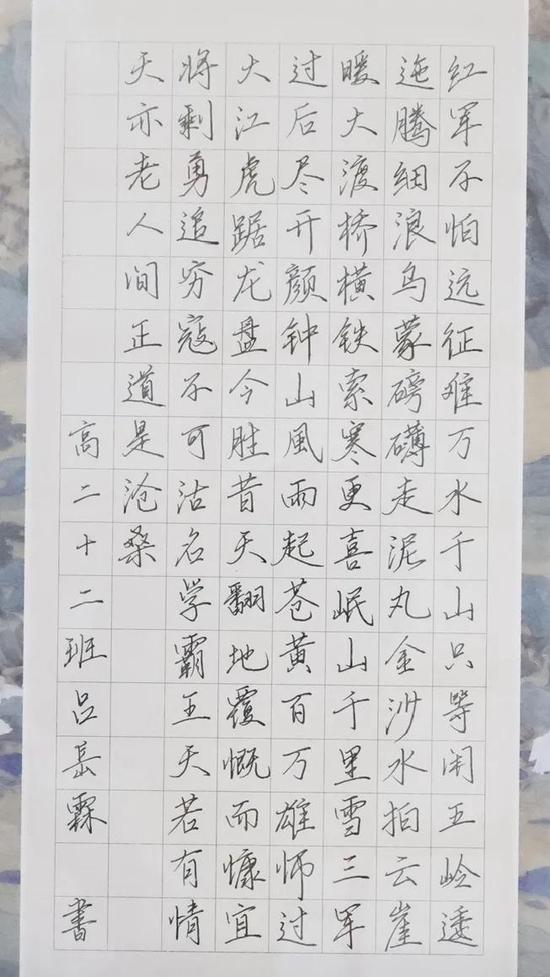 红军不怕远征难万水千山只等闲五岭逶
迤腾细浪乌蒙磅礴走泥丸金沙水拍云崖
暖大渡桥横铁索寒更喜岷山千里雪三军
过后尽开颜钟山風雨起苍黄百万雄师过
大江虎踞龙盘今胜昔天翻地覆慨而慷宜
将剩勇追穷寇不可沽名学霸王天若有情
天亦老人间正道是沧桑
高二十二班吕岳霖 書